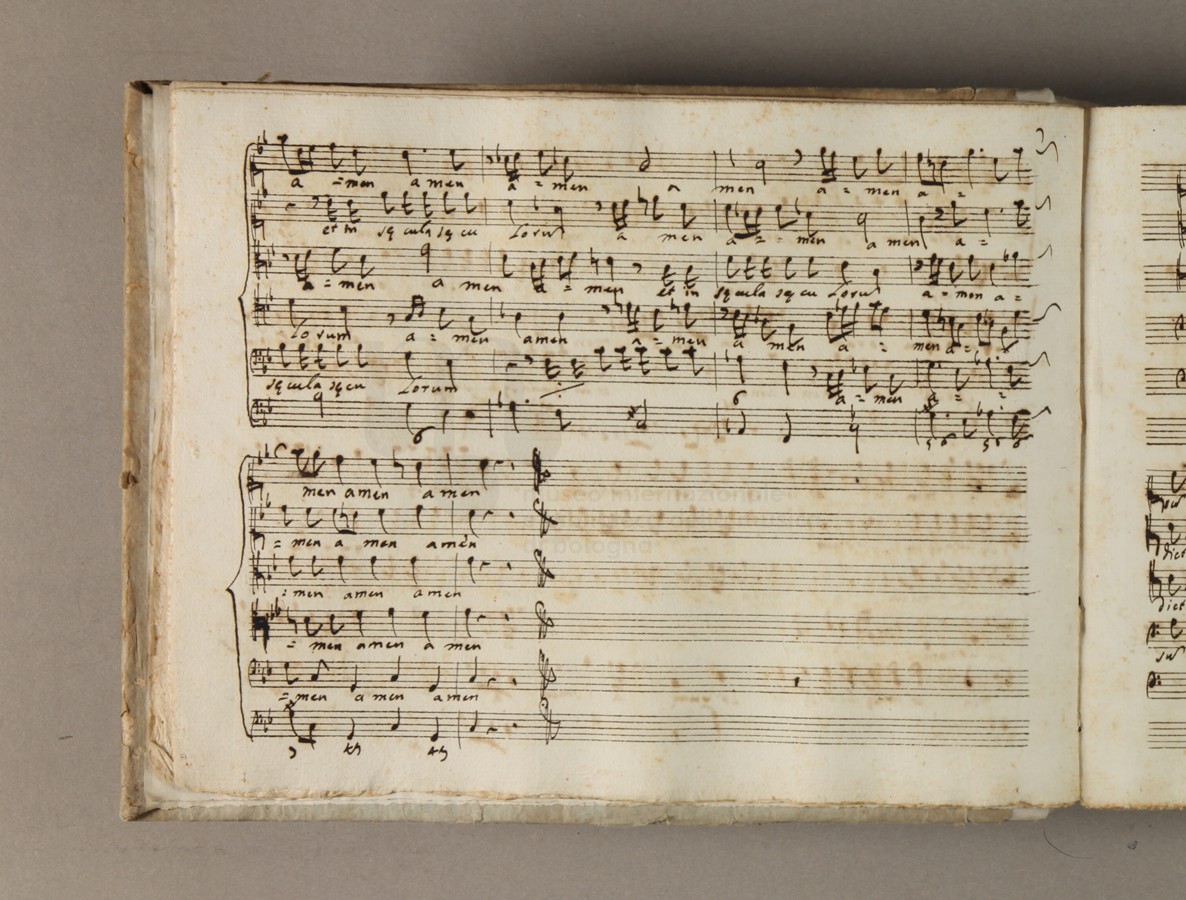 a = men a men a = men a men a = men a =
et in sęculasęcu Lorum a men a = = men a men a =
a = men a men a = men et in sęcula sęcu Lorum a = men a =
Lorum a = men amen a = men a men a = men a =
sęcula sęcu Lorum a = men a = =
6 6 5 6 5 6
men amen amen
= men a men amen
= men amen amen
= men amen a men
= men a men amen
museo internazionale
di bologna